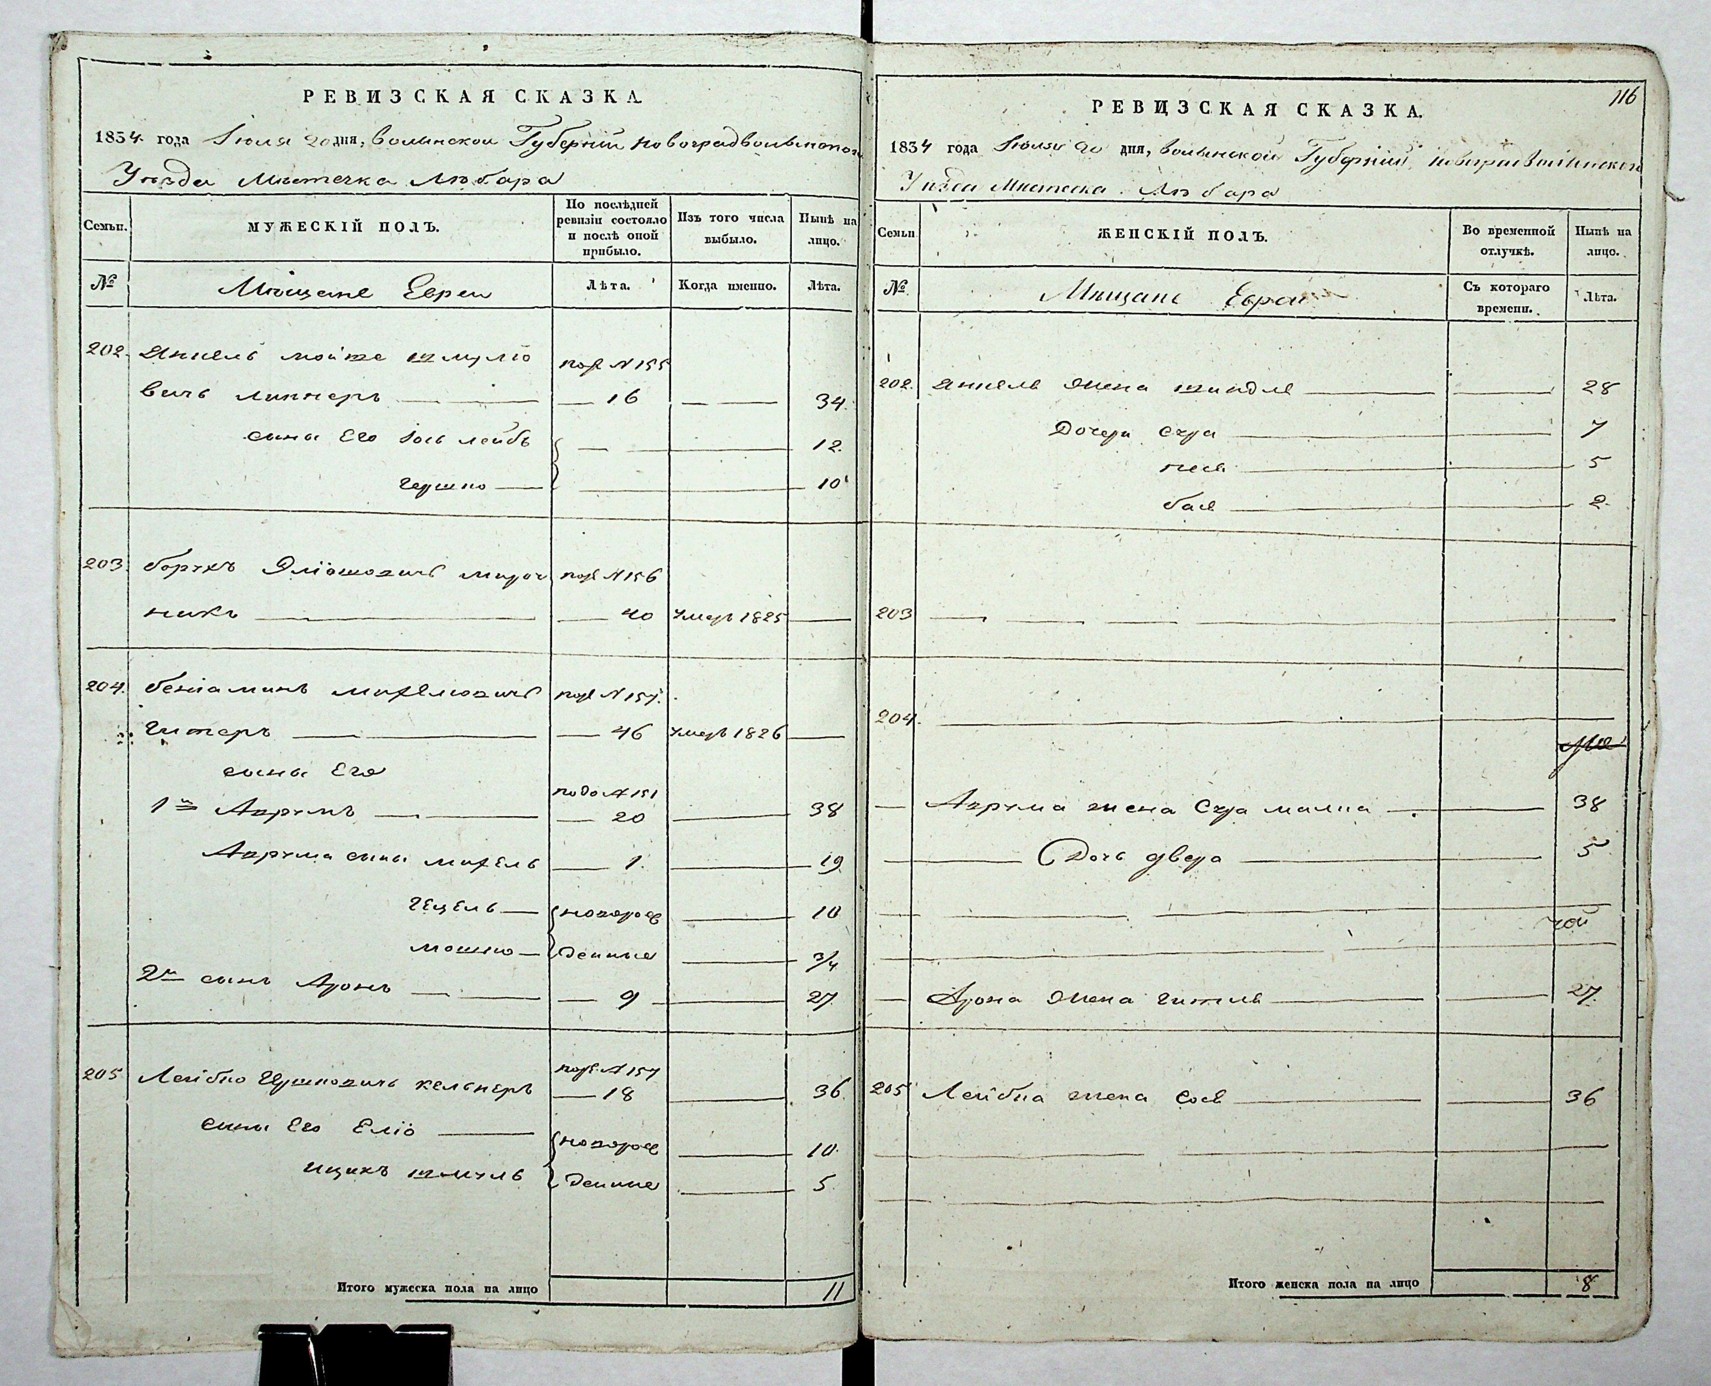 РЕВИЗСКАЯ СКАЗКА.
1834 года Іюля 20 дня, Волынской Губерніи Новоградволынского
Уѣзда Мѣстечка Любара
Семьи.
МУЖЕСКІЙ ПОЛЪ.
По послѣдней ревизіи состояло и послѣ оной прибыло.
Изъ того числа выбыло.
Нынѣ на лицо.
№
Мѣщане Евреи
Лѣта.
Когда именно.
Лѣта.
202. Анкель Мойше Шмулiо под N 155
вичъ — 16 — 34.
сыны Его Iось Лейбъ — 12.
Гершко — 10
203. Борухъ Эліошовичъ под N 156
никъ — 40 умеръ 1825 —
204. Беніаминъ Михелювичъ под N 157.
Гитеръ — 46 умеръ 1826 —
сыны Его
1й Аврумъ — подо N 151 — 20 — 38
Аврума сыны Михель — 1. — 19
Гецель — новорож — 10
Мошко — денные — 3/4
2й сынъ Аронъ — 9 — 27
205 Лейбко Гершковичъ Кельнеръ — 18 — 36.
сыны Его Еліо — новорож — 10.
Ицикъ Шмуль денные — 5
Итого мужеска пола на лицо 11
116
РЕВИЗСКАЯ СКАЗКА.
1834 года Іюля 20 дня, Волынской Губерніи Новоградволынского
Уѣзда Мѣстечка Любара
Семьи
ЖЕНСКІЙ ПОЛЪ.
Во временной отлучкѣ.
Нынѣ на лицо.
№
Мѣщане Евреи
Съ котораго времени.
Лѣта.
202. Анкеля жена Шиндля — 28
Дочери Сура — 7
Песя — 5
Бася — 2
203 —
204. —
— Аврума жена Сура Малка — 38
— Дочь Двера — 5
— Арона жена Гитля — 27
205 Лейбка жена Сося — 36
Итого женска пола на лицо 8